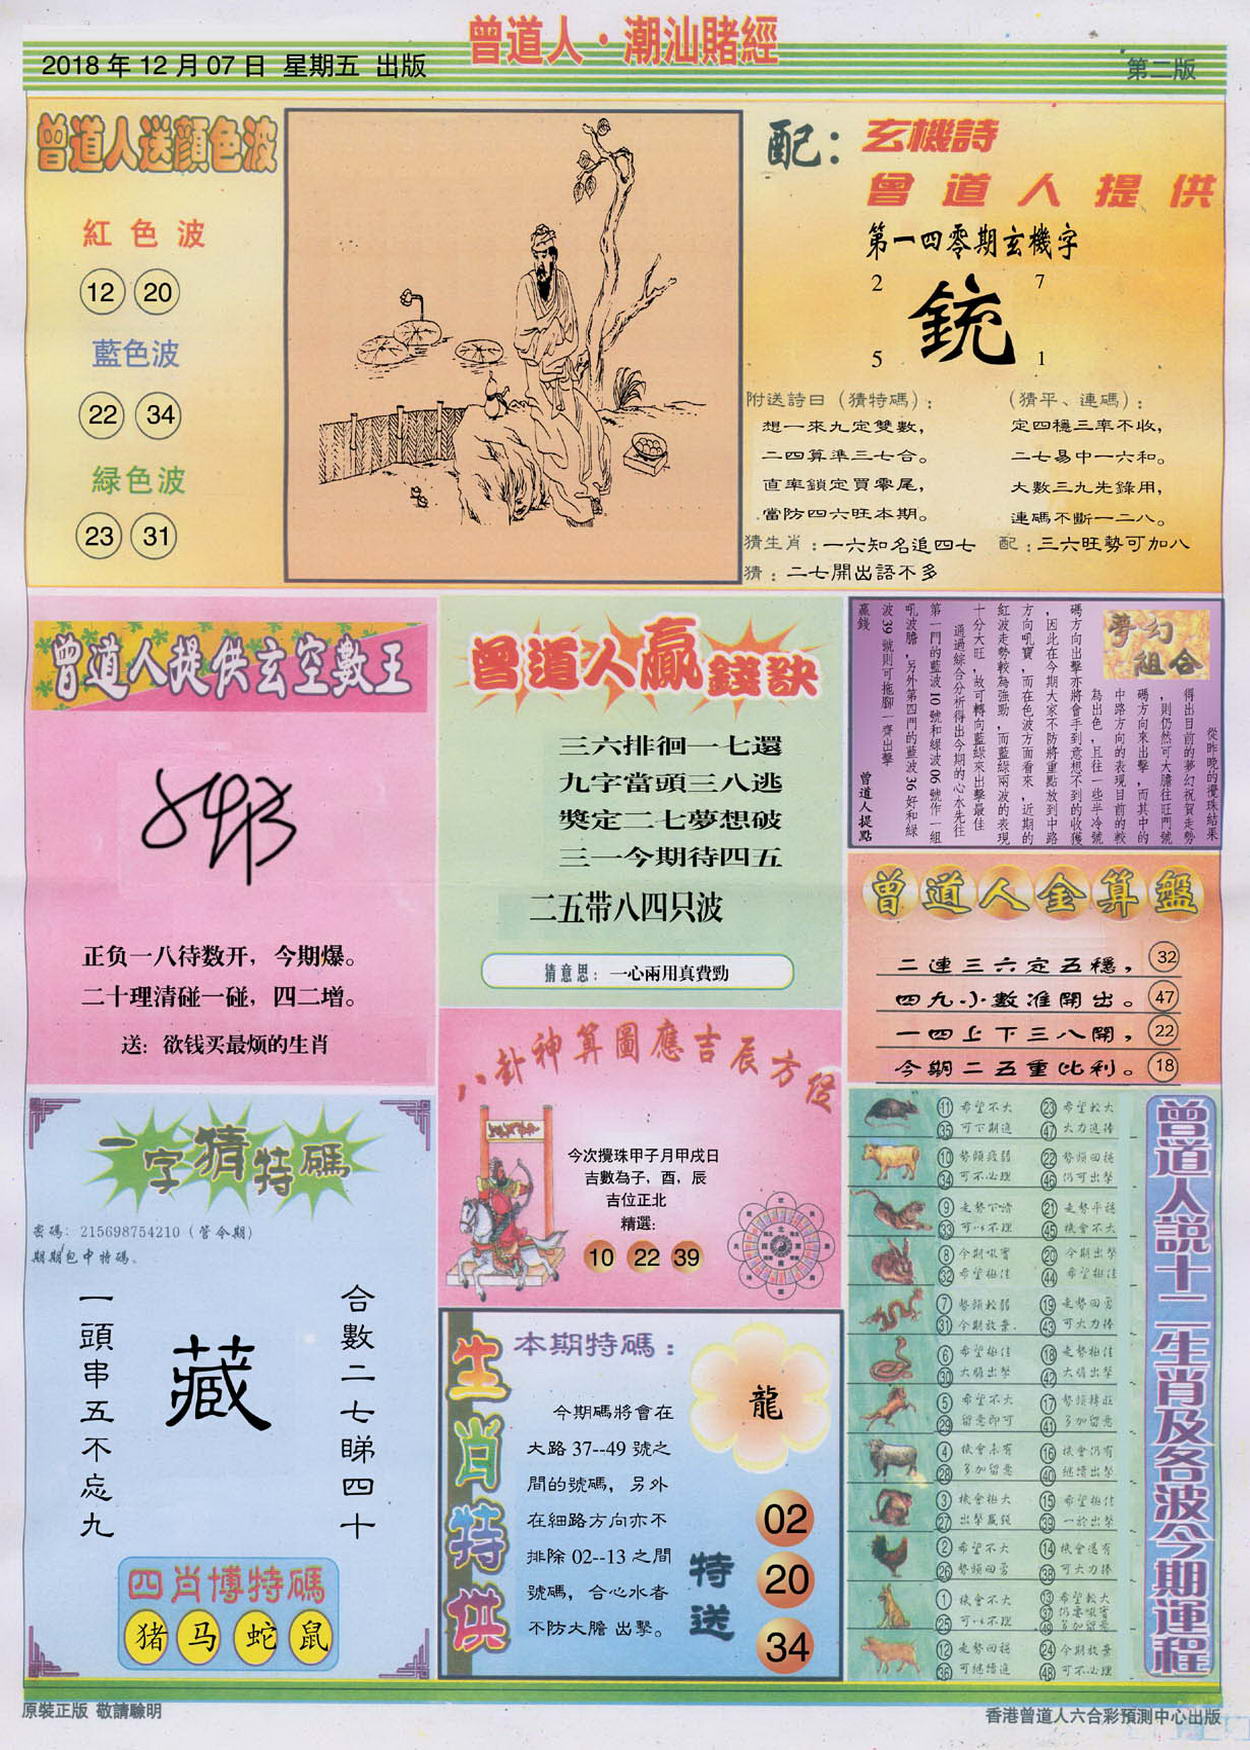 曾道人·潮汕賭經
2018年12月07日 星期五 出版
第二版
曾道人送顏色波
紅色波
12 20
藍色波
22 34
緑色波
23 31
配：玄機詩
曾道人提供
第一四零期玄機字
2 7
銃
5 1
附送詩曰（猜特碼）：
想一來九定雙數，
二四算準三七合。
直率鎖定買零尾，
當防四六旺本期。
（猜平、連碼）：
定四穩三率不收，
二七易中一六和。
大數三九先錄用，
連碼不斷一二八。
猜生肖：一六知名追四七
配：三六旺勢可加八
猜：二七開出語不多
曾道人提供玄空數王
正负一八待数开，今期爆。
二十理清碰一碰，四二增。
送：欲钱买最烦的生肖
曾道人贏錢訣
三六排徊一七還
九字當頭三八逃
獎定二七夢想破
三一今期待四五
二五带八四只波
猜意思：一心兩用真費勁
夢幻組合
從昨晚的攪珠結果
得出目前的夢幻祝賀走勢
，則仍然可大膽往旺門號
碼方向來出擊，而其中的
中路方向的表現目前的較
為出色，且往一些半冷號
碼方向出擊亦將會手到意想不到的收獲
，因此在今期大家不防將重點放到中路
方向吼寶，而在色波方面看來，近期的
紅波走勢較為強勁，而藍綠兩波的表現
十分大旺，故可轉向藍綠來出擊最佳
通過綜合分析得出今期的心水先往
第一門的藍波10號和綠波06號作一組
吼波膽，另外第四門的藍波36好和綠
波39號則可拖腳一齊出擊
贏錢
曾道人提點
曾道人金算盤
二連三六定五穩，32
四九小數准開出。47
一四上下三八開，22
今期二五重比利。18
一字猜特碼
密碼：215698754210（管今期）
期期包中特碼。
合數二七睇四十
藏
一頭串五不忘九
四肖博特碼
猪 马 蛇 鼠
八卦神算圖應吉辰方位
今次攪珠甲子月甲戌日
吉數為子，酉，辰
吉位正北
精選：
10 22 39
生肖特供
本期特碼：
龍
今期碼將會在
大路37--49號之
間的號碼，另外
在細路方向亦不
排除02--13之間
號碼，合心水者
不防大膽出擊。
特送
02
20
34
曾道人説十二生肖及各波今期運程
11 希望不大 23 希望較大
35 可下期進 47 大力進捧
10 勢頭疲弱 22 勢頭回穩
34 可不必理 46 仍可出擊
9 21 走勢平穩
33 可以不理 45 機會不大
8 今期吼寶 20 今期出擊
32 希望極佳 44 希望極佳
7 勢頭較弱 19 走勢回勇
31 今期放棄 43 可大力捧
6 希望極佳 18 走勢極佳
30 大膽出擊 42 大膽出擊
5 希望不大 17
29 留意即可 41 多加留意
4 機會未有 16 機會仍有
28 多加留意 40 繼續出擊
3 機會極大 15 希望極佳
27 出擊贏錢 39 一於出擊
2 希望不大 14 機會還有
26 勢頭回勇 38 可大力捧
1 機會不大 13 希望較大
25 可以不理 37 仍要吼實
49 多加留意
12 走勢回穩 24 今期放棄
36 可繼續進 48 可不必理
原裝正版 敬請驗明
香港曾道人六合彩預測中心出版